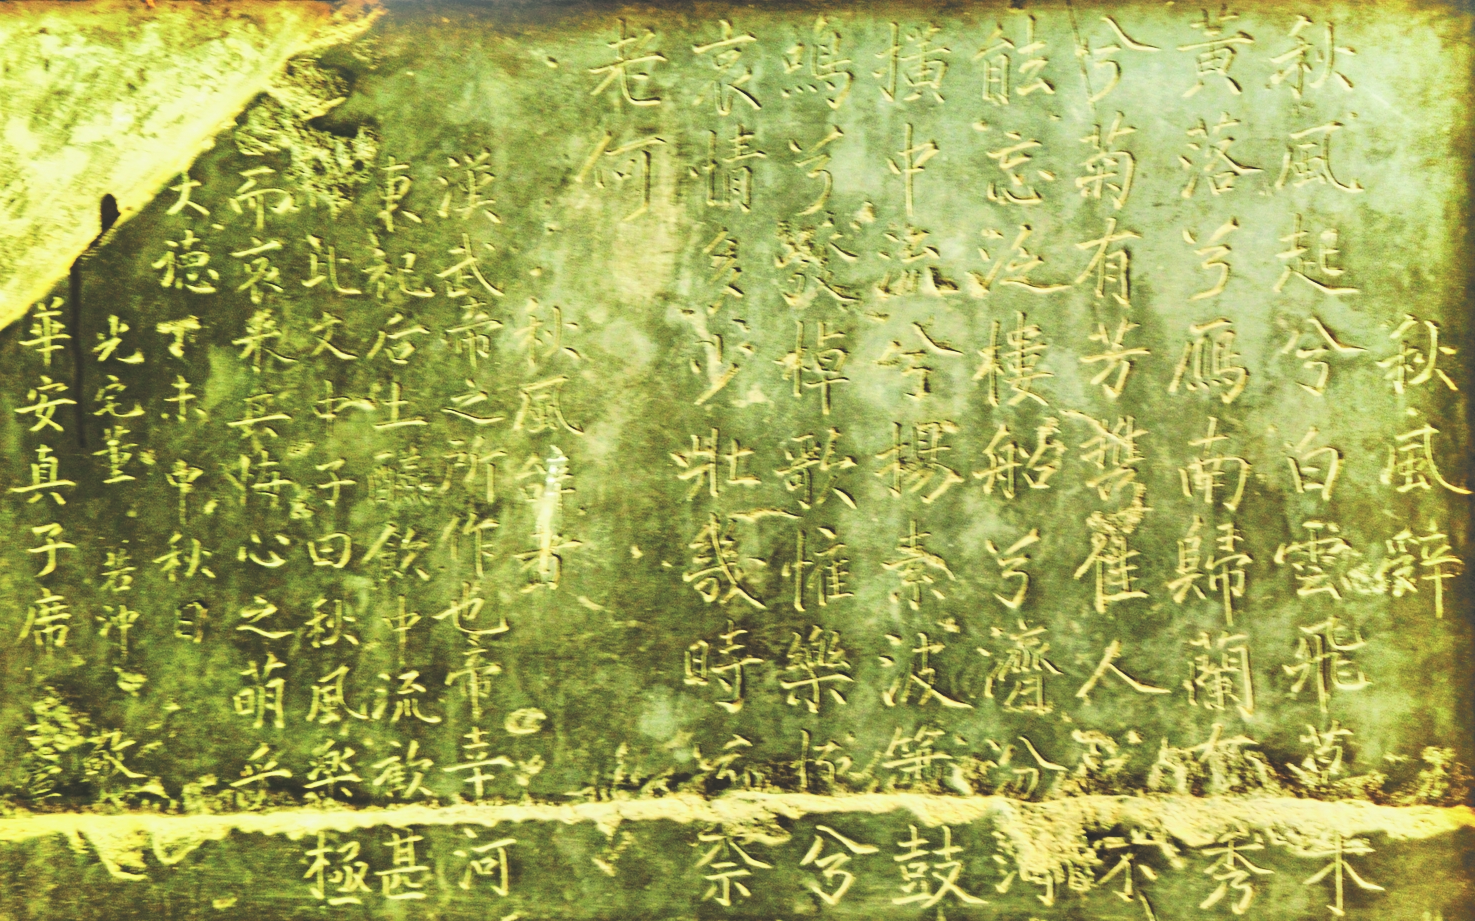 秋風辭
秋風起兮白雲飛草木
黃落兮鴈南歸蘭有秀
兮菊有芳攜佳人不
能忘泛樓船兮濟汾河
橫中流兮揚素波簫鼓
鳴兮發棹歌懽樂極兮
哀情多少壯幾時奈
老何
秋風辭者
漢武帝之所作也帝幸河
東祀后土讌飲中流歡甚
作此文中子曰秋風樂極
而哀來其悔心之萌乎
大德丁未中秋日
光宅董若沖
華安真子席